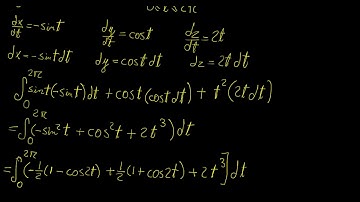 dx/dt = -sint dy/dt = cost dz/dt = 2t
dx = -sint dt dy = cost dt dz = 2t dt
∫₀^2π sint(-sint)dt + cost(cost dt) + t²(2t dt)
= ∫₀^2π (-sin²t + cos²t + 2t³)dt
= ∫₀^2π (-½(1-cos2t) + ½(1+cos2t) + 2t³]dt